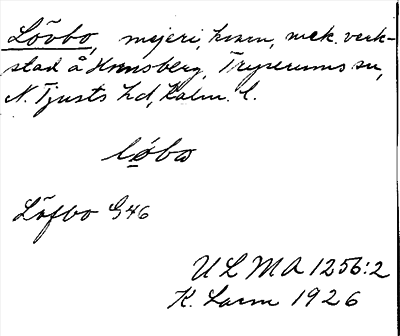 Lövbo, mejeri, kvarn, mek. verk-
stad å Hornsberg, Tryserums sn,
N. Tjusts hd, Kalm. l.
löbo
Löfbo G46
ULMA 1256:2
K. Larm 1926